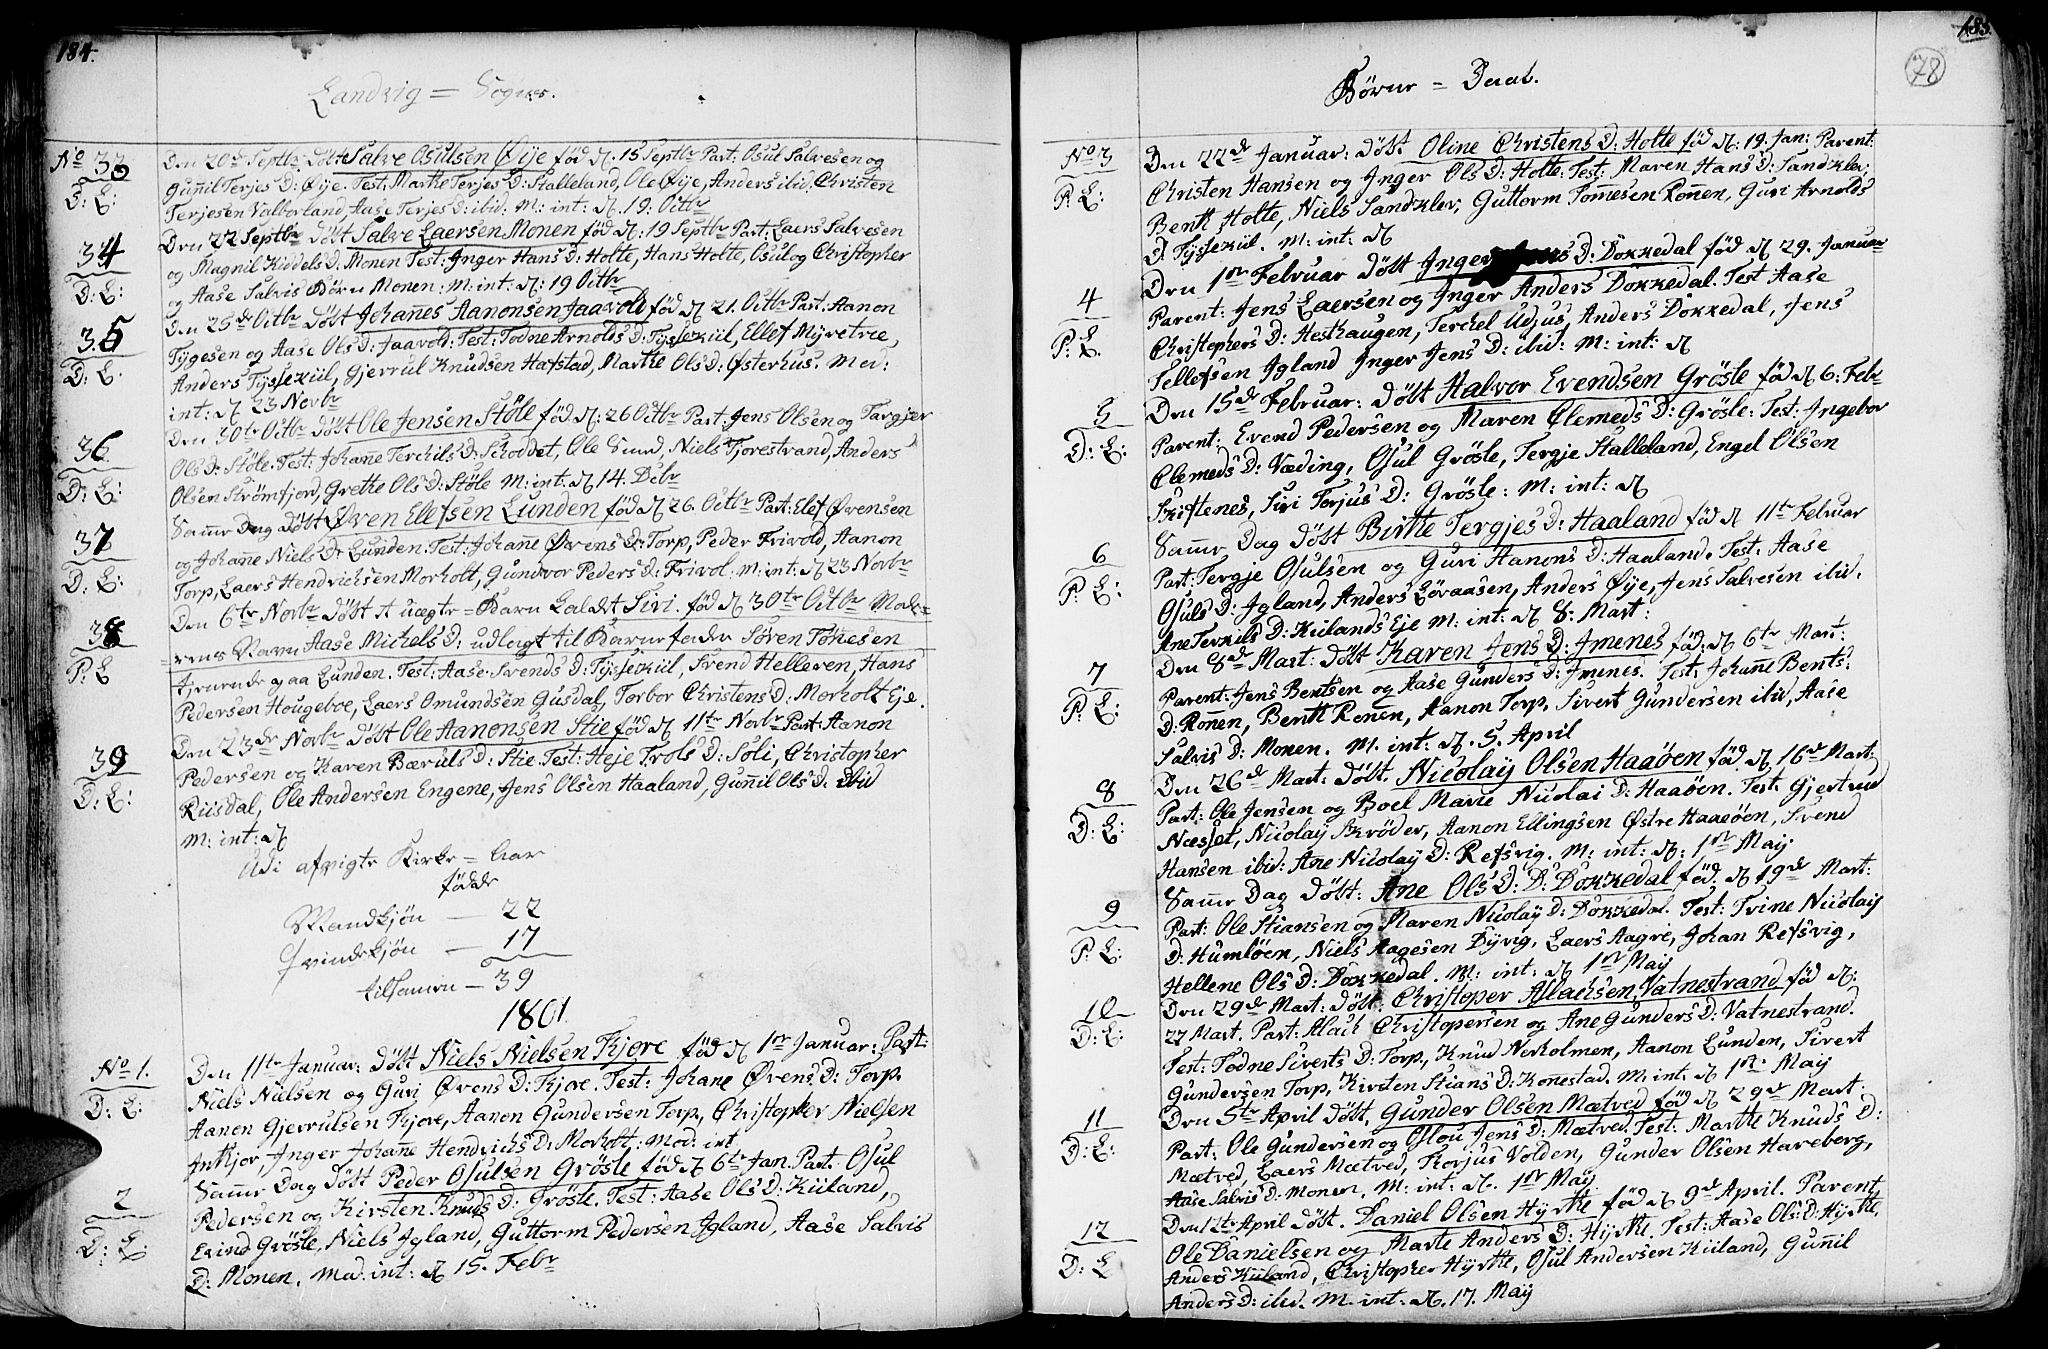 184.
Landvig = Sogns.
No 33 Den 20de Septbr døbt Salve Osulsen Øÿe fød d. 15 Septbr Part: Osul Salvesen og
D: E: Guñil Terjes D: Øÿe. Test: Marthe Terjes D: Stalleland, Ole Øÿe, Anders ibid, Christen
Terjesen Valborland, Aase Terjes D: ibid. M: int: d. 19: Octbr
34 Den 22 Septbr døbt Salve Laersen Monen fød d: 19 Septbr Part: Laers Salvesen
og Magnil Kiddels D: Monen Test: Inger Hans D: Holte, Hans Holte, Osul og Christopher
D: E: og Aase Salvis Børn Monen: M: int: d: 19 Octbr
35 Den 25de Octbr døbt Johañes Aanonsen Jaavold fød d 21. Octbr Part: Aanon
Tygesen og Aase Ols D: Jaavold: Test: Todne Arnolds D: Tÿssekiil, Ellef Mÿretræ,
D: E. Anders Tÿssekiil, Gjerrul Knudsen Hafstad, Marthe Ols D: Østerhus. Med:
int: d 23 Novbr
36 Den 30te Octbr døbt Ole Jensen Støle fød d: 26 Octbr Part: Jens Olsen og Targjer
Ols D: Støle. Test: Johañe Terchils D: Skoddet, Ole Sund, Niels Fjorestrand, Anders
D: E: Olsen Strømfjord, Grethe Ols D: Støle M: int: d 14. Dcbr
37 Samme Dag døbt Øven Elefsen Lunden fød d 26. Octbr Part: Elef Øvensen
og Johañe Niels D: Lunden. Test: Johañe Øvens D: Torp, Peder Frivold, Aanon
D: E: Torp, Laers Hendrichsen Morholt, Gundvor Peders D: Frivol: m: int: d 23 Novbr
38 Den 6te Novbr døbt et uægte = Barn kaldet Siri. fød d 30te Octbr Mode=
=rens Navn Aase Michels D: udlagt til Barnefader Søren Tønesen
P: E tjenende paa Lunden. Test: Aase Svends D: Tÿssekiil, Svend Helleren, Hans
Pedersen Hougeboe, Laers Omundsen Gusdal, Torbor Christens D: Morholt Eje.
39 Den 23de Novbr døbt Ole Aanonsen Stie fød d 11te Novbr Part: Aanon
Pedersen og Karen Bæruls D: Stie. Test: Heje Trols D: Soli, Christopher
D: E: Riisdal, Ole Andersen Engene, Jens Olsen Haaland, Guñil Ols D: ibid
M: int: d
Udi afvigte Kirke = Aar
fødde
Mandkjøn — 22
Qvindekjøn — 17
tilsamen — 39
1801.
No 1. Den 11te Januar: døbt Niels Nielsen Kjore fød d 1ste Januar: Part:
Niels Nielsen og Guri Øvens D: Kjore. Test: Johane Øvens D: Torp.
D: E: Aanon Gjerrulsen Kjore, Aanon Gundersen Torp, Christopher Nielsen
Inkjor, Inger Johañe Hendrichs D: Morholt: Mod: int
2 Samme Dag døbt Peder Osulsen Grøsle fød d 6te Jan. Part: Osul
Pedersen og Kirsten Knuds D: Grøsle. Test: Aase Ols D: Kiiland,
D: E. Evind Grøsle, Niels Igland, Guttorm Pedersen Igland, Aase Salvis
D: Monen. Mod. int: d 15. Febr
185.
78
Børne = Daab.
No 3 Den 22de Januar: døbt Oline Christens D: Holte fød d. 19. Jan: Parent:
P: E: Christen Hansen og Inger Ols D: Holte: Test: Maren Hans D: Sandklev,
Benth Holte, Niels Sandklev, Guttorm Tomesen Roñen, Guri Arnolds
D: Tÿssekiil. M: int: d
4 Den 1ste Februar døbt Inger Jens D: Dokkedal fød d 29. Januar
Parent: Jens Laersen og Inger Anders Dokkedal. Test Aase
P: E. Christophers D: Heshaugen, Terchel Udjus, Anders Dokkedal, Jens
Tellefsen Igland Inger Jens D: ibid: M: int: d
5 Den 15de Februar: døbt Halvor Evendsen Grøsle fød d 6: Febr
Parent: Evend Pedersen og Maren Clemeds D: Grøsle: Test: Ingebor
D: E: Clemeds D: Væding, Osul Grøsle, Tergje Stalleland, Engel Olsen
Skiftenes, Siri Torjus D: Grøsle: M: int: d
6 Samme Dag døbt Birthe Tergjes D: Haaland fød d 11te Februar
Part: Tergje Osulsen og Guri Hanons D: Haaland. Test: Aase
P: E: Osuls D: Igland, Anders Løvaasen, Anders Øÿe, Jens Salvesen ibid.
Ane Terkils D: Kiilands Eje M: int: d 8: Mart:
7 Den 8de Mart: døbt Karen Jens D: Imenes fød: d 6te Mart:
Parent: Jens Bentsen og Aase Gunders D: Imenes. Test: Johañe Bents:
P: E: D: Roñen, Benth Roñen, Aanon Torp, Sivert Gundersen ibid, Aase
Salvis D: Monen. M. int: d. 5. April
8 Den 26de Mart: døbt. Nicolaÿ Olsen Haaøen fød d 16de Mart:
Part: Ole Jensen og Boel Marie Nicolai D: Haaøen. Test: Gjertrud
D: E: Næsset, Nicolaÿ Skrøder, Aanon Ellingsen Østre Haaeøen, Svend
Hansen ibid: Ane Nicolaÿ D: Refsvig. M: int: d: 1ste Maÿ.
9 Samme Dag døbt: Ane Ols D: D: Dokkedal fød. d 19de Mart:
Part: Ole Stiansen og Maren Nicolaÿ D: Dokkedal. Test: Trine Nicolaÿ
P: E: D: Humløen, Niels Aagesen Dÿvig, Laers Aagre, Johan Refsvig,
Hellene Ols D: Dokkedal. M: int: d 1ste Maÿ
10 Den 29de Mart: døbt: Christoper Aslachsen Vatnestrand fød d:
D: E: 27 Mart. Part: Aslach Christopersen og Ane Gunders D: Vatnestrand.
Test: Todne Siverts D: Torp, Knud Norholmen, Aanon Lunden, Sivert
Gundersen Torp, Kirsten Stians D: Konestad. M: int: d 1ste Maÿ
11 Den 5te April døbt, Gunder Olsen Mætved fød d 29de Mart:
D: E: Part: Ole Gundersen og Oslou Jens D: Mætved. Test: Marthe Knuds D:
Mætved, Laers Mætved, Torjus Volden, Gunder Olsen Hareberg,
Aase Salvis D: Monen. M: int: d. 1ste Maÿ.
12 Den 12te April døbt. Daniel Olsen Hÿrthe fød d 9de April. Parent
Ole Danielsen og Marte Anders D: Hÿrthe. Test: Aase Ols: D: Hÿrthe,
D: E Anders Kiiland, Christopher Hÿrthe, Osul Andersen Kiiland, Guñil
Anders D: ibid. M: int: d. 17. Maÿ